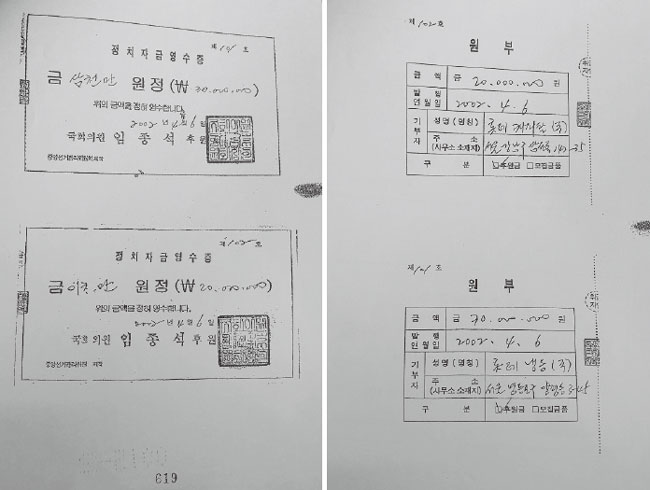 제101호
정치자금영수증
금 삼천만 원정(₩ 30.000.000)
위의 금액을 정히 영수합니다.
2002년 4월 6일
국회의원 임종석 후원
중앙선거관리위원회 제작
제102호
정치자금영수증
금 이천만 원정(₩ 20.000.000)
위의 금액을 정히 영수합니다.
2002년 4월 6일
국회의원 임종석 후원
중앙선거관리위원회 제작
619
제102호
원 부
금 액 금 20.000.000 원
발 행 연월일 2002. 4. 6
기부자 성명(명칭) 롯데 (주)
주 소 (사무소 소재지) 서울
구 분 ☑후원금 □모집금품
제101호
원 부
금 액 금 30.000.000 원
발 행 연월일 2002. 4. 6
기부자 성명(명칭) 롯데 냉동(주)
주 소 (사무소 소재지) 서울 영등포구 양평동
구 분 ☑후원금 □모집금품